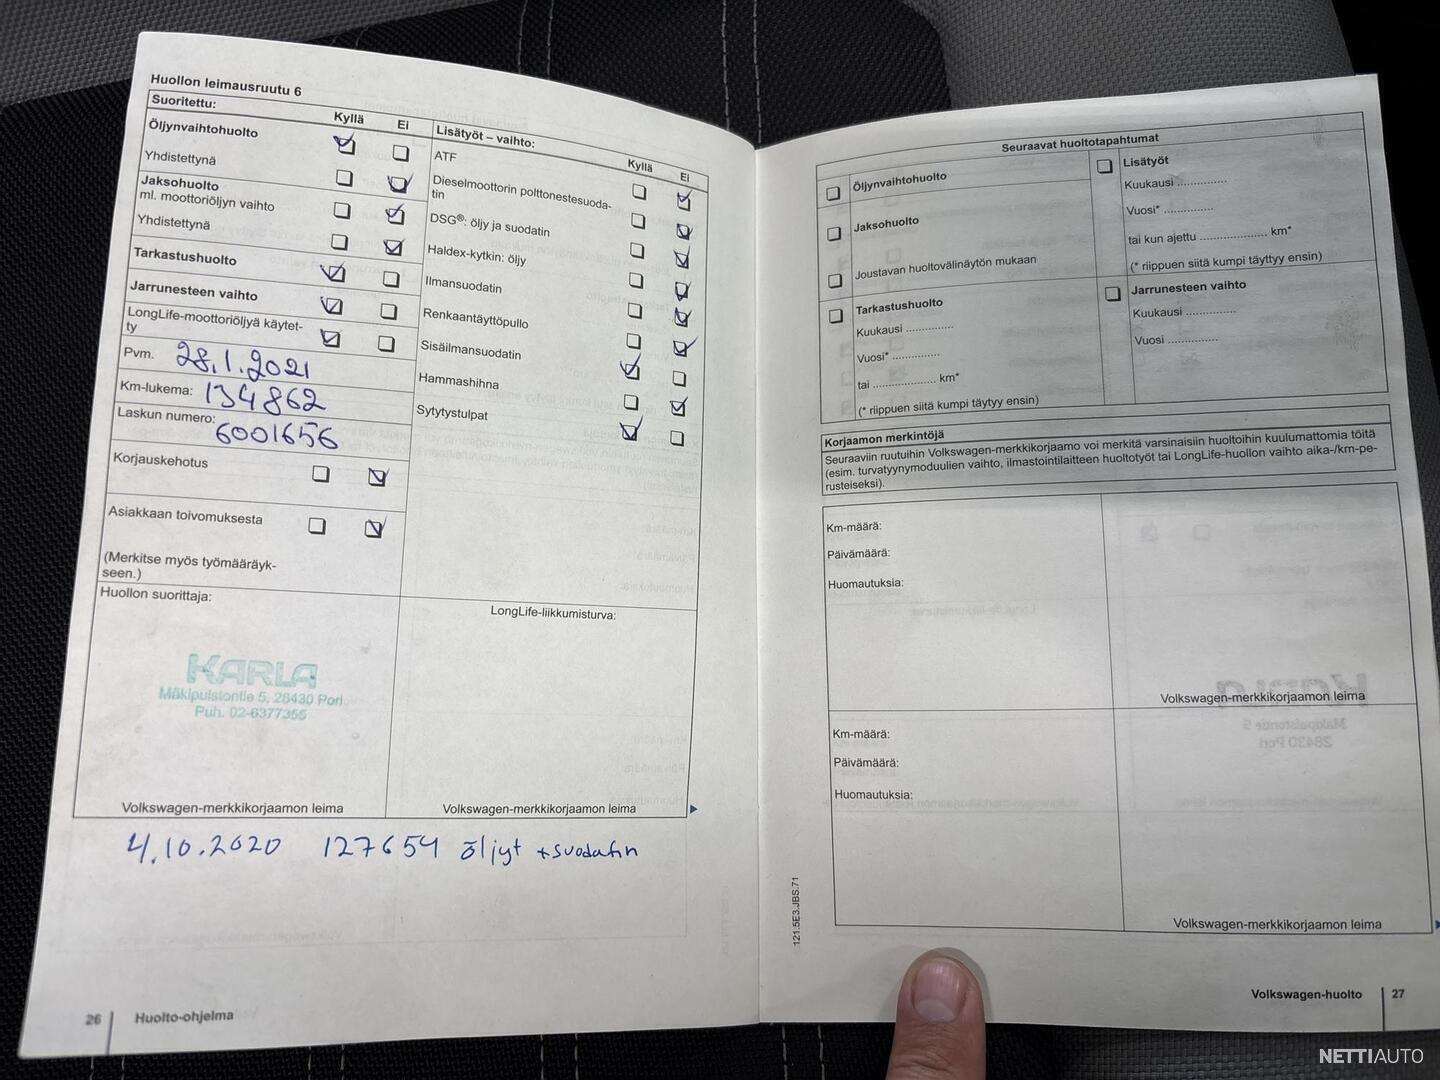 Huollon leimausruutu 6
Suoritettu:
Kyllä
Ei
Öljynvaihtohuolto
Yhdistettynä
Jaksohuolto
ml. moottoriöljyn vaihto
Yhdistettynä
Tarkastushuolto
Jarrunesteen vaihto
LongLife-moottoriöljyä käytet-
ty
Pvm. 28.1.2021
Km-lukema: 134862
Laskun numero:
6001656
Korjauskehotus
Asiakkaan toivomuksesta
(Merkitse myös työmääräyk-
seen.)
Huollon suorittaja:
KARLA
Mäkipuistontie 5, 28430 Pori
Puh. 02-6377355
Volkswagen-merkkikorjaamon leima
Lisätyöt – vaihto:
Kyllä
Ei
ATF
Dieselmoottorin polttonestesuoda-
tin
DSG®: öljy ja suodatin
Haldex-kytkin: öljy
Ilmansuodatin
Renkaantäyttöpullo
Sisäilmansuodatin
Hammashihna
Sytytystulpat
LongLife-liikkumisturva:
Volkswagen-merkkikorjaamon leima
4.10.2020 127654 öljyt +suodatin
26 Huolto-ohjelma
Seuraavat huoltotapahtumat
Öljynvaihtohuolto
Jaksohuolto
Joustavan huoltovälinäytön mukaan
Tarkastushuolto
Kuukausi ..............
Vuosi* ..............
tai .................... km*
(* riippuen siitä kumpi täytyy ensin)
Lisätyöt
Kuukausi ..............
Vuosi* ..............
tai kun ajettu .................... km*
(* riippuen siitä kumpi täyttyy ensin)
Jarrunesteen vaihto
Kuukausi ..............
Vuosi ..............
Korjaamon merkintöjä
Seuraaviin ruutuihin Volkswagen-merkkikorjaamo voi merkitä varsinaisiin huoltoihin kuulumattomia töitä
(esim. turvatyynymoduulien vaihto, ilmastointilaitteen huoltotyöt tai LongLife-huollon vaihto aika-/km-pe-
rusteiseksi).
Km-määrä:
Päivämäärä:
Huomautuksia:
Volkswagen-merkkikorjaamon leima
Km-määrä:
Päivämäärä:
Huomautuksia:
Volkswagen-merkkikorjaamon leima
121.5E3.JBS.71
Volkswagen-huolto 27
NETTIAUTO